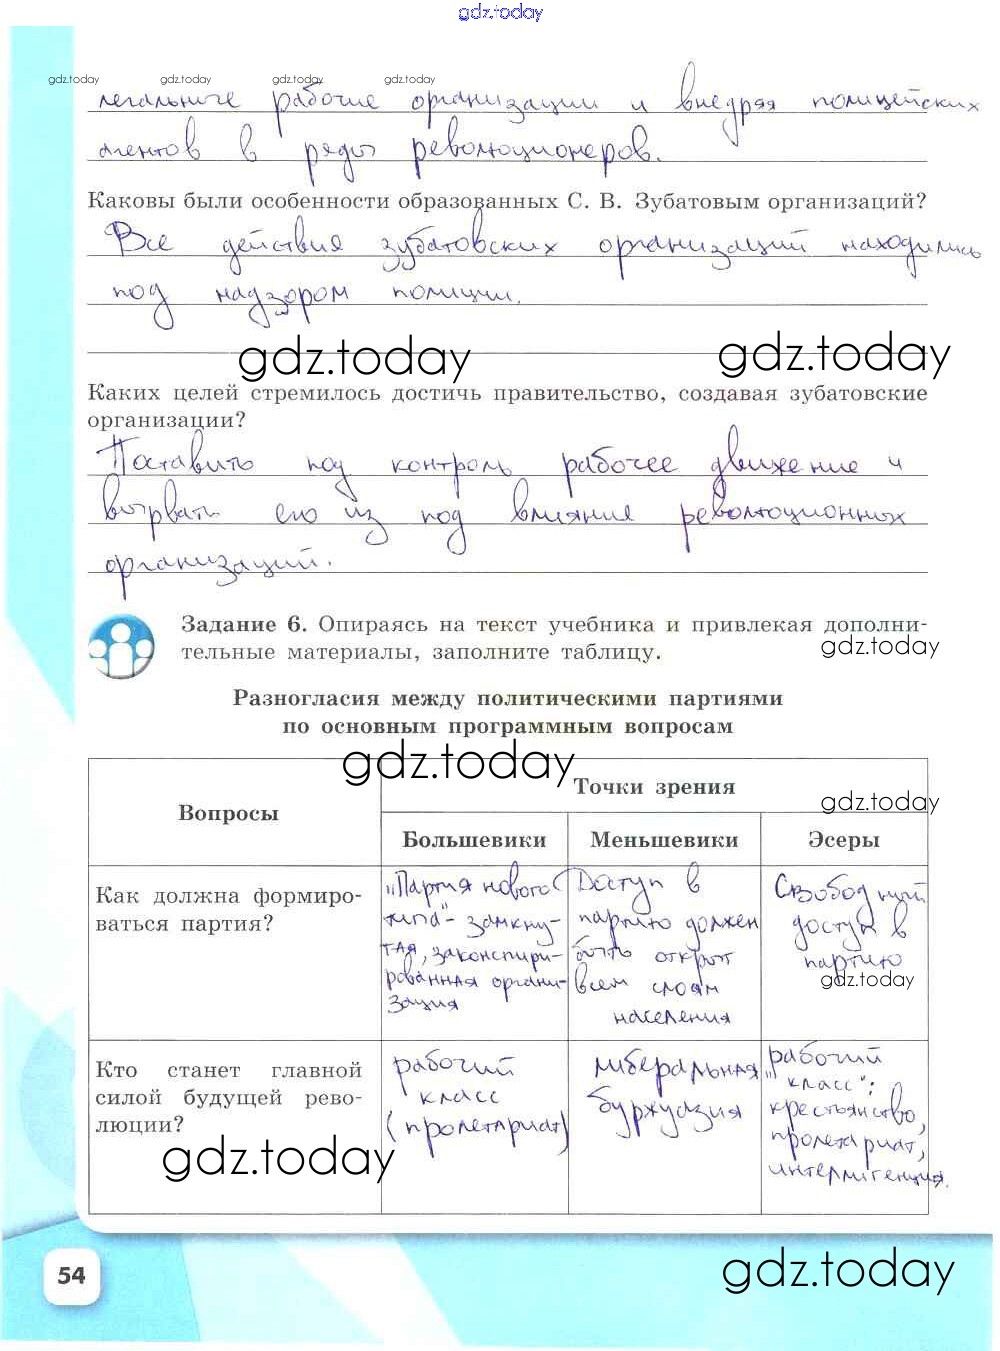 gdz.today
gdz.today gdz.today gdz.today gdz.today
легальные рабочие организации и внедряя полицейских
агентов в ряды революционеров.
Каковы были особенности образованных С. В. Зубатовым организаций?
Все действия зубатовских организаций находились
под надзором полиции.
gdz.today gdz.today
Каких целей стремилось достичь правительство, создавая зубатовские
организации?
Поставить под контроль рабочее движение и
вырвать его из под влияния революционных
организаций.
Задание 6. Опираясь на текст учебника и привлекая дополни-
тельные материалы, заполните таблицу.
gdz.today
Разногласия между политическими партиями
по основным программным вопросам
gdz.today
Вопросы
Точки зрения
gdz.today
Большевики Меньшевики Эсеры
Как должна формиро-
ваться партия?
"Партия нового
типа" - замкну-
тая, законспири-
рованная органи-
зация
Доступ в
партию должен
быть открыт
всем слоям
населения
Свободный
доступ в
партию
gdz.today
Кто станет главной
силой будущей рево-
люции?
рабочий
класс
(пролетариат)
либеральная
буржуазия
рабочий
"класс":
крестьянство,
пролетариат,
интеллигенция.
gdz.today
54
gdz.today